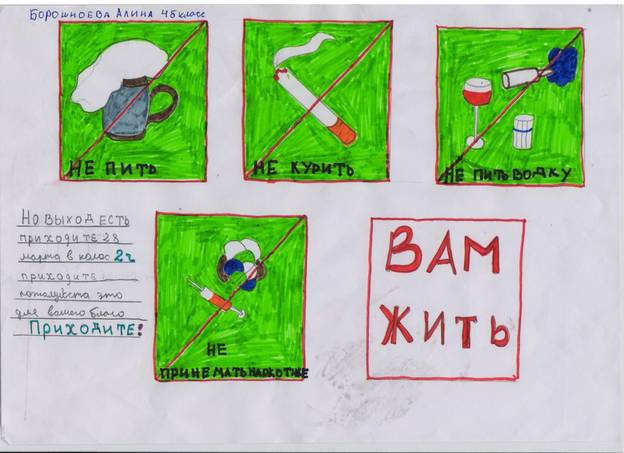 Борошноева Алина 4б класс
НЕ ПИТЬ
НЕ КУРИТЬ
НЕ ПИТЬ ВОДКУ
Но выход есть
приходите 28
марта в колос 2ч
приходите
пожалуйста это
для вашего блага
Приходите!
НЕ
ПРИНЕМАТЬ НАРКОТИКЕ
ВАМ
ЖИТЬ